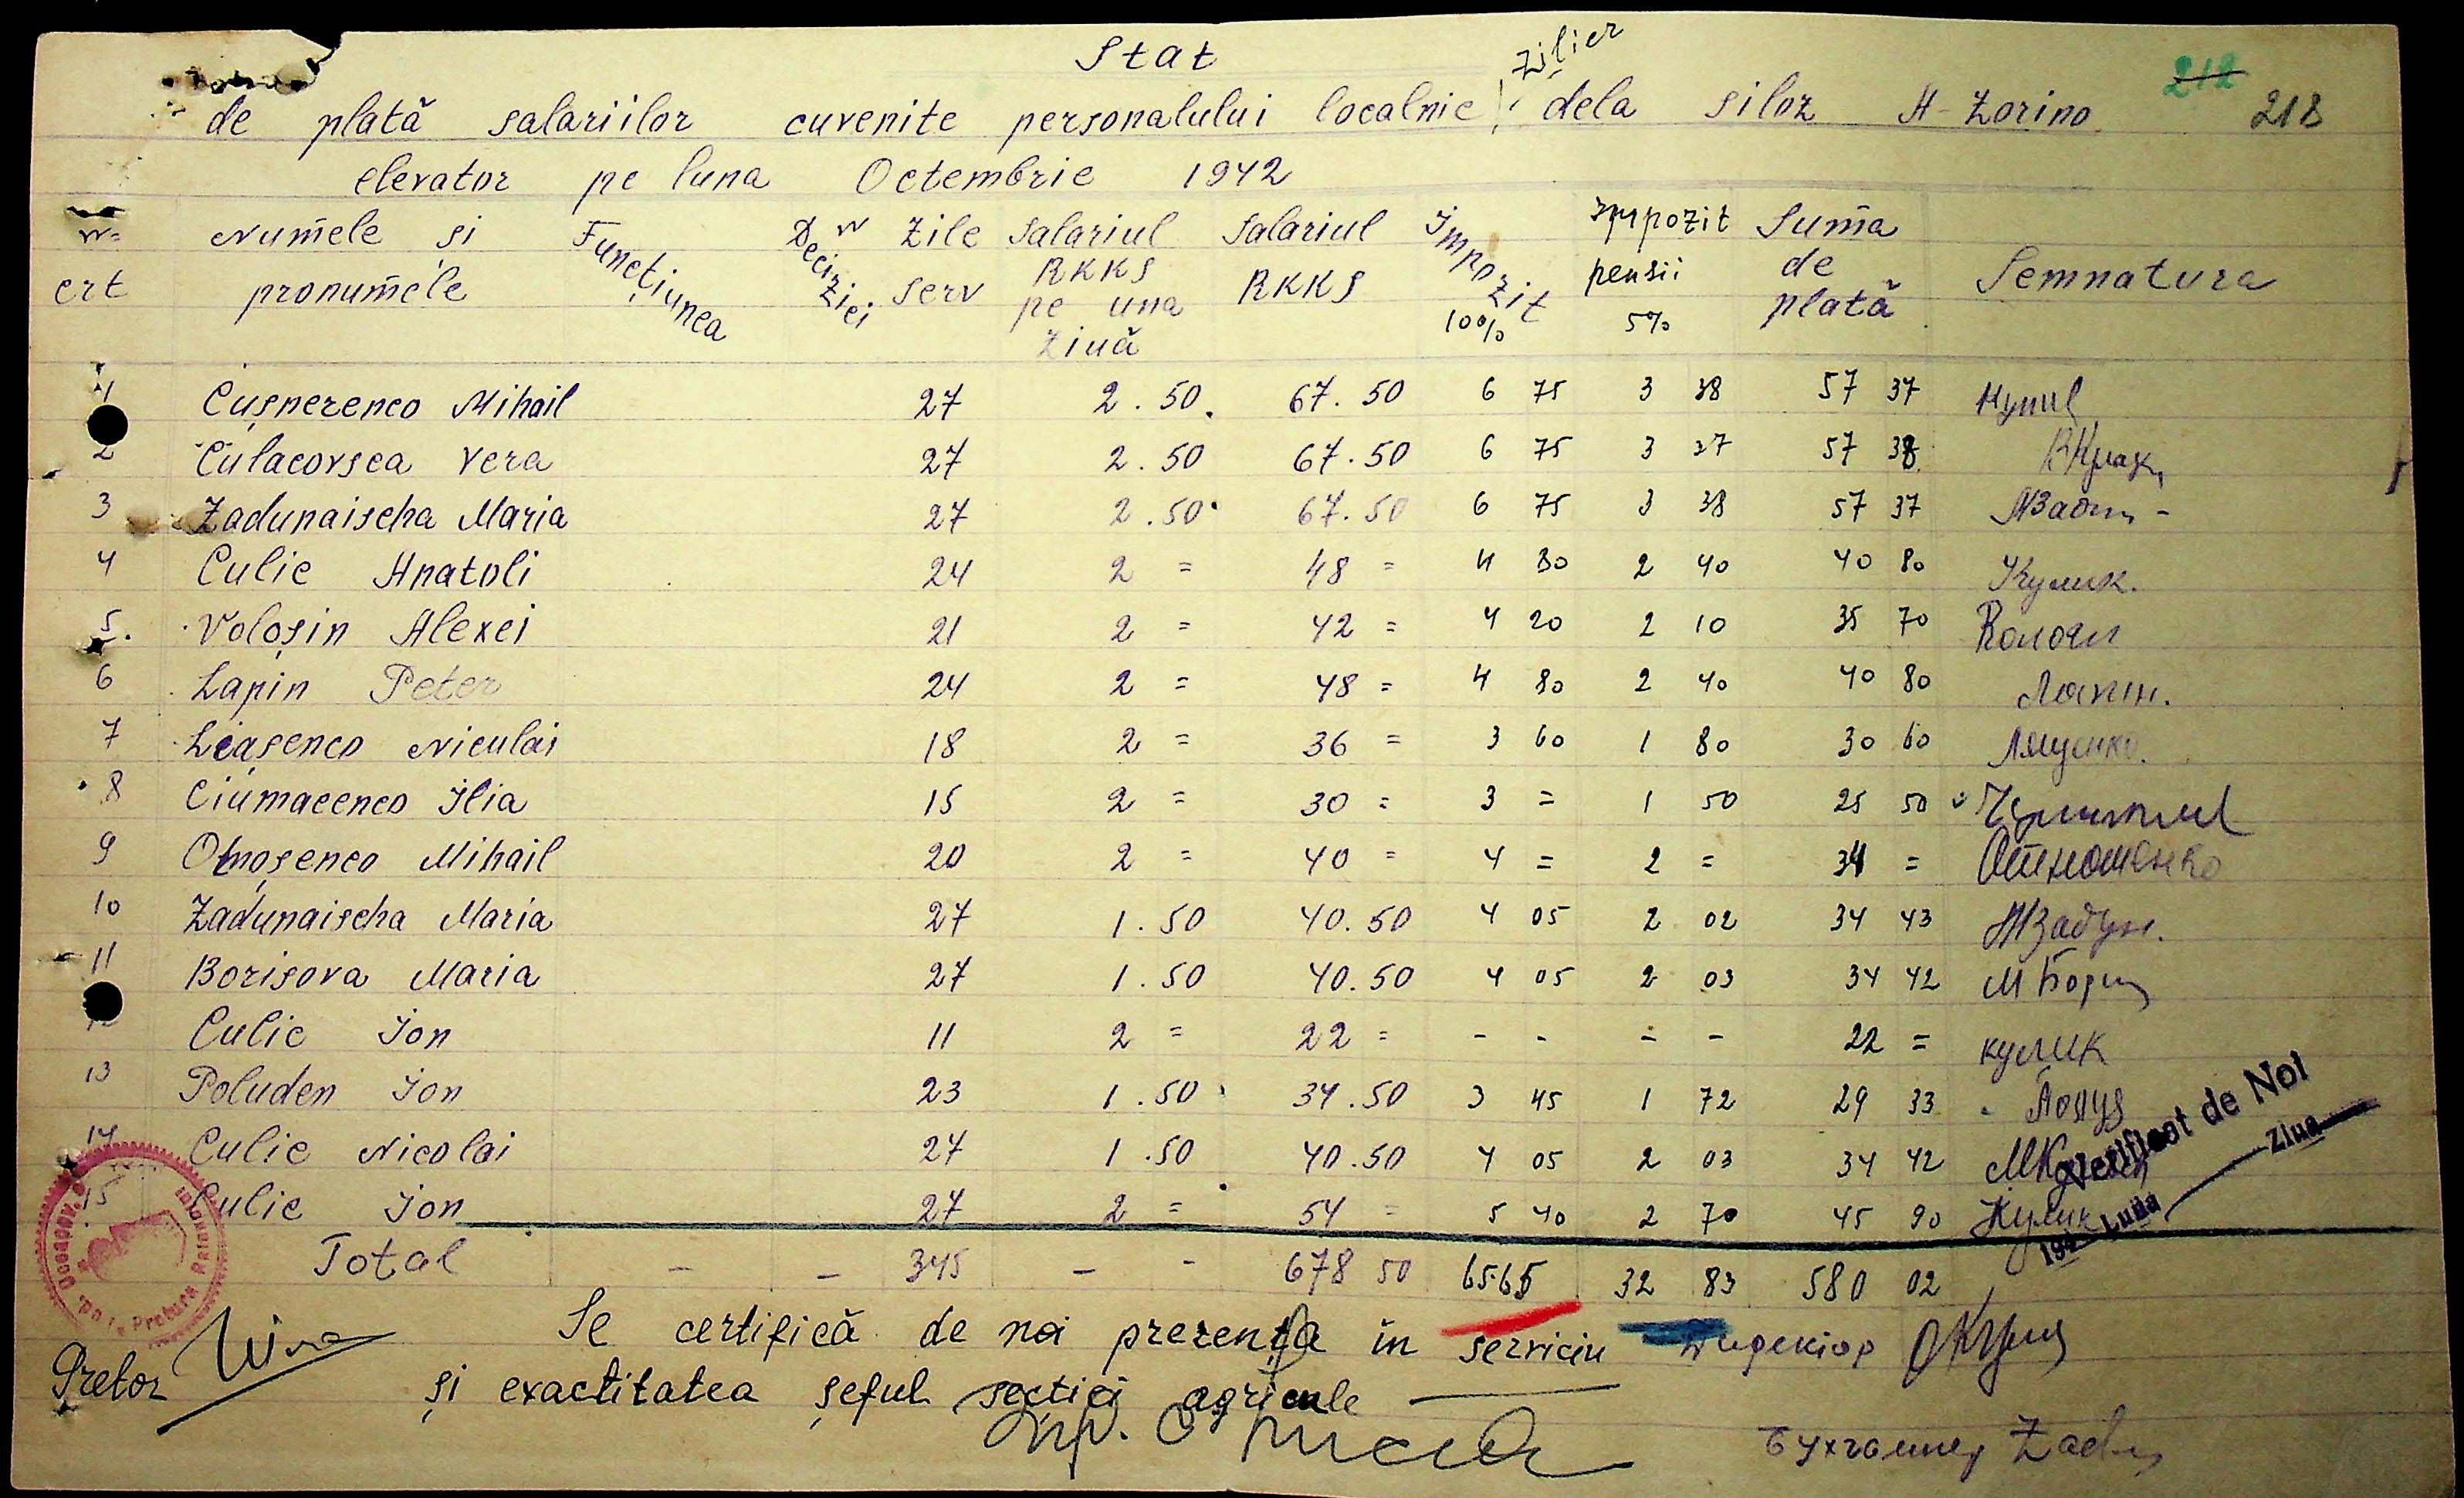 Stat
zilier
212 218
de plată salariilor cuvenite personalului localnic dela siloz A-Zorino
elevator pe luna Octembrie 1942
Nr= crt Numele și pronumele Funcțiunea Nr Deciziei Zile serv Salariul RKKS pe una ziuă Salariul RKKS Impozit 10% Impozit pensii 5% Suma de plată Semnatura
1 Cușnerenco Mihail 27 2.50 67.50 6 75 3 38 57 37
2 Culacovsca Vera 27 2.50 67.50 6 75 3 37 57 38
3 Zadunaischa Maria 27 2.50 67.50 6 75 3 38 57 37
4 Culic Anatoli 24 2 = 48 = 4 80 2 40 40 80 Кулик.
5. Voloșin Alexei 21 2 = 42 = 4 20 2 10 35 70
6 Lapin Peter 24 2 = 48 = 4 80 2 40 40 80 Лапин.
7 Liașenco Niculai 18 2 = 36 = 3 60 1 80 30 60 Ляшенко.
8 Ciumacenco Ilia 15 2 = 30 = 3 = 1 50 25 50
9 Otnoșenco Mihail 20 2 = 40 = 4 = 2 = 34 = Отношенко
10 Zadunaischa Maria 27 1.50 40.50 4 05 2 02 34 43 МЗадун.
11 Borisova Maria 27 1.50 40.50 4 05 2 03 34 42 М Бори
12 Culic Ion 11 2 = 22 = - - - - 22 = кулик
13 Poluden Ion 23 1.50 34.50 3 45 1 72 29 33 Полуд
14 Culic Nicolai 27 1.50 40.50 4 05 2 03 34 42
15 Culic Ion 27 2 = 54 = 5 40 2 70 45 90 Кулик
Verificat de Noi
194 Luna Ziua
Total - - 345 - - 678 50 65.65 32 83 580 02
Se certifică de noi prezența în serviciu
și exactitatea șeful secției agricule
Pretor
Директор
Бухгалтер Zad